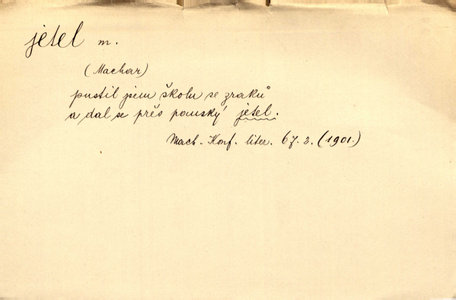 jetel m.
(Machar)
pustil jsem školu se zraků
a dal se přes panský jetel.
Mach. Konf. liter. 67.8. (1901.)